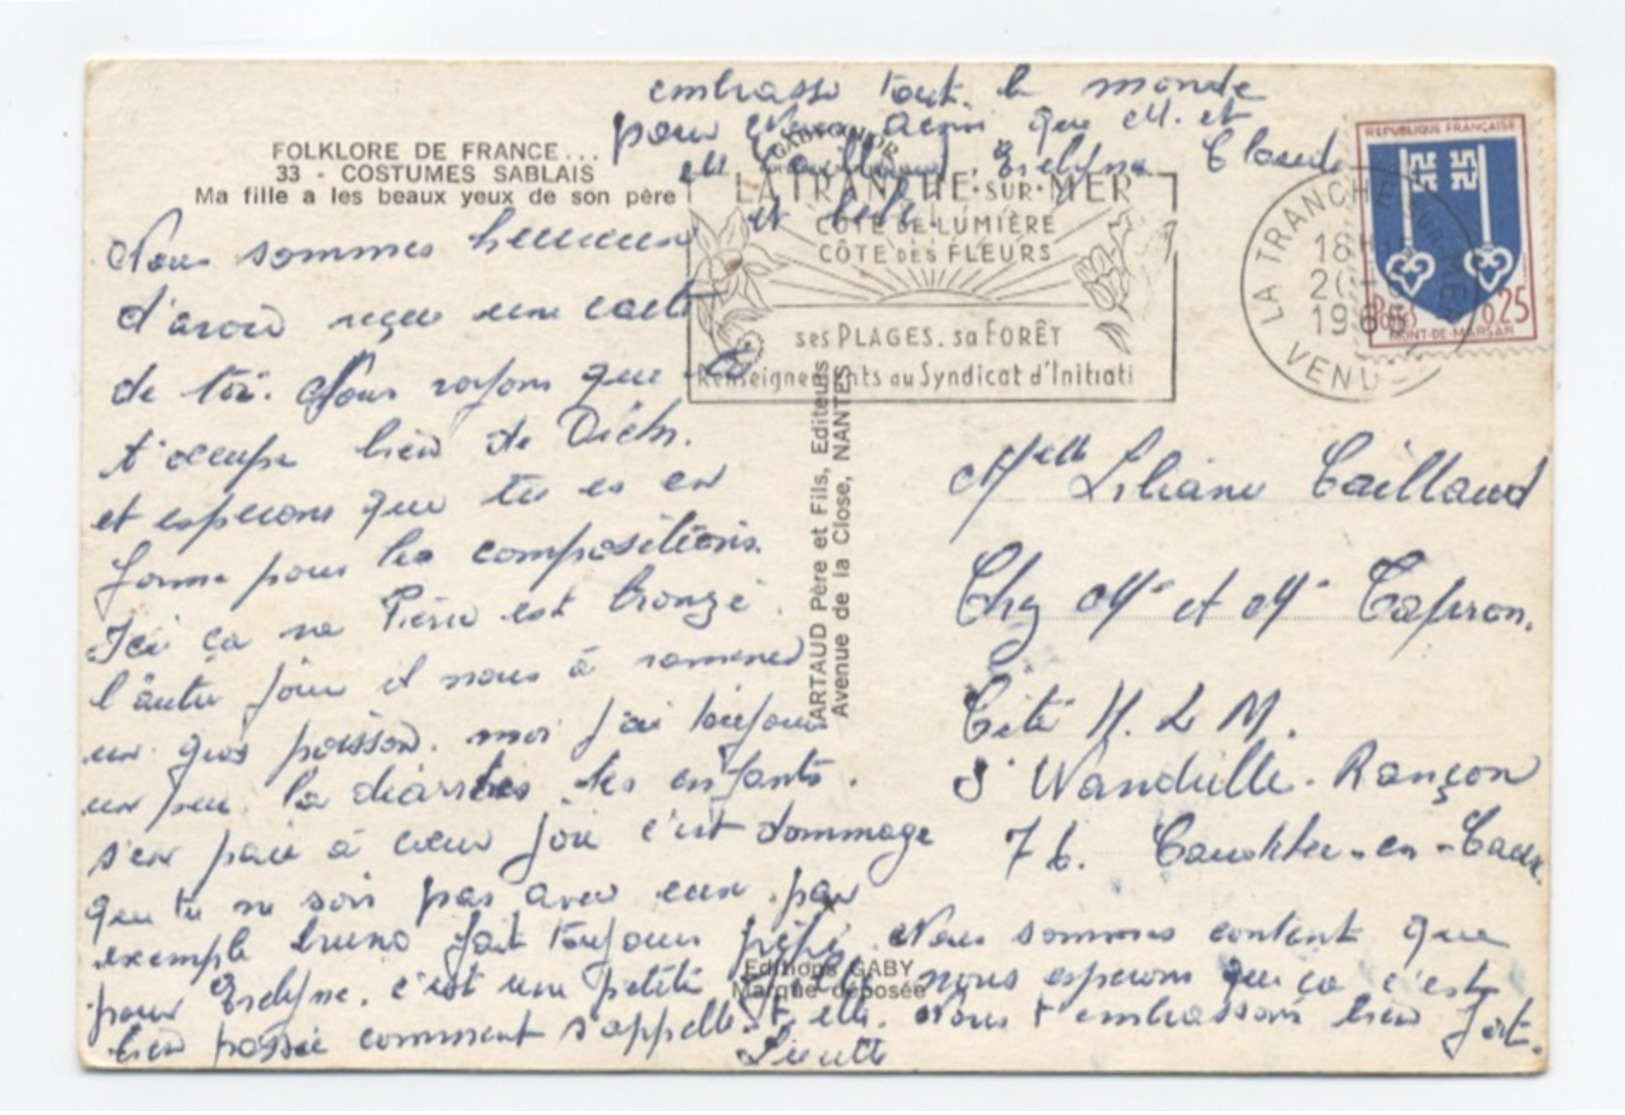 embrasse tout le monde
pour nous ainsi que M. et
Caillaud, Evelyne Claude
et bébé
FOLKLORE DE FRANCE...
33 - COSTUMES SABLAIS
Ma fille a les beaux yeux de son père
LA TRANCHE·SUR·MER
CÔTE DE LUMIÈRE
CÔTE DES FLEURS
ses PLAGES. sa FORÊT
Renseignements au Syndicat d'Initiati
LA TRANCHE-SUR-MER
18H
20
196
VEND
REPUBLIQUE FRANÇAISE
Postes 0,25
MONT-DE-MARSAN
Nous sommes heureux
d'avoir reçu une carte
de toi. Nous voyons que
t'occupe bien de
et esperons que tu es en
forme pour les compositions.
Ici ça va Pierre est bronzé.
l'autre jour il nous à ramener
un gros poisson. moi j'ai toujours
un peu la diarrhée les enfants.
s'en paie à cœur joie c'est dommage
que tu ne sois pas avec eux. par
exemple bruno fait toujours pipi.
pour Evelyne. c'est une petite fille
bien passée comment s'appelle t elle.
ARTAUD Père et Fils, Editeurs
Avenue de la Close, NANTES
Editions GABY
Marque déposée
Melle Liliane Caillaud
Chez Mr et Me Capron.
Cité H. L M.
St Wandrille-Rançon
76. Caudebec-en-Caux.
Nous sommes content que
nous esperons que ça c'est
Nous t'embrassons bien fort.